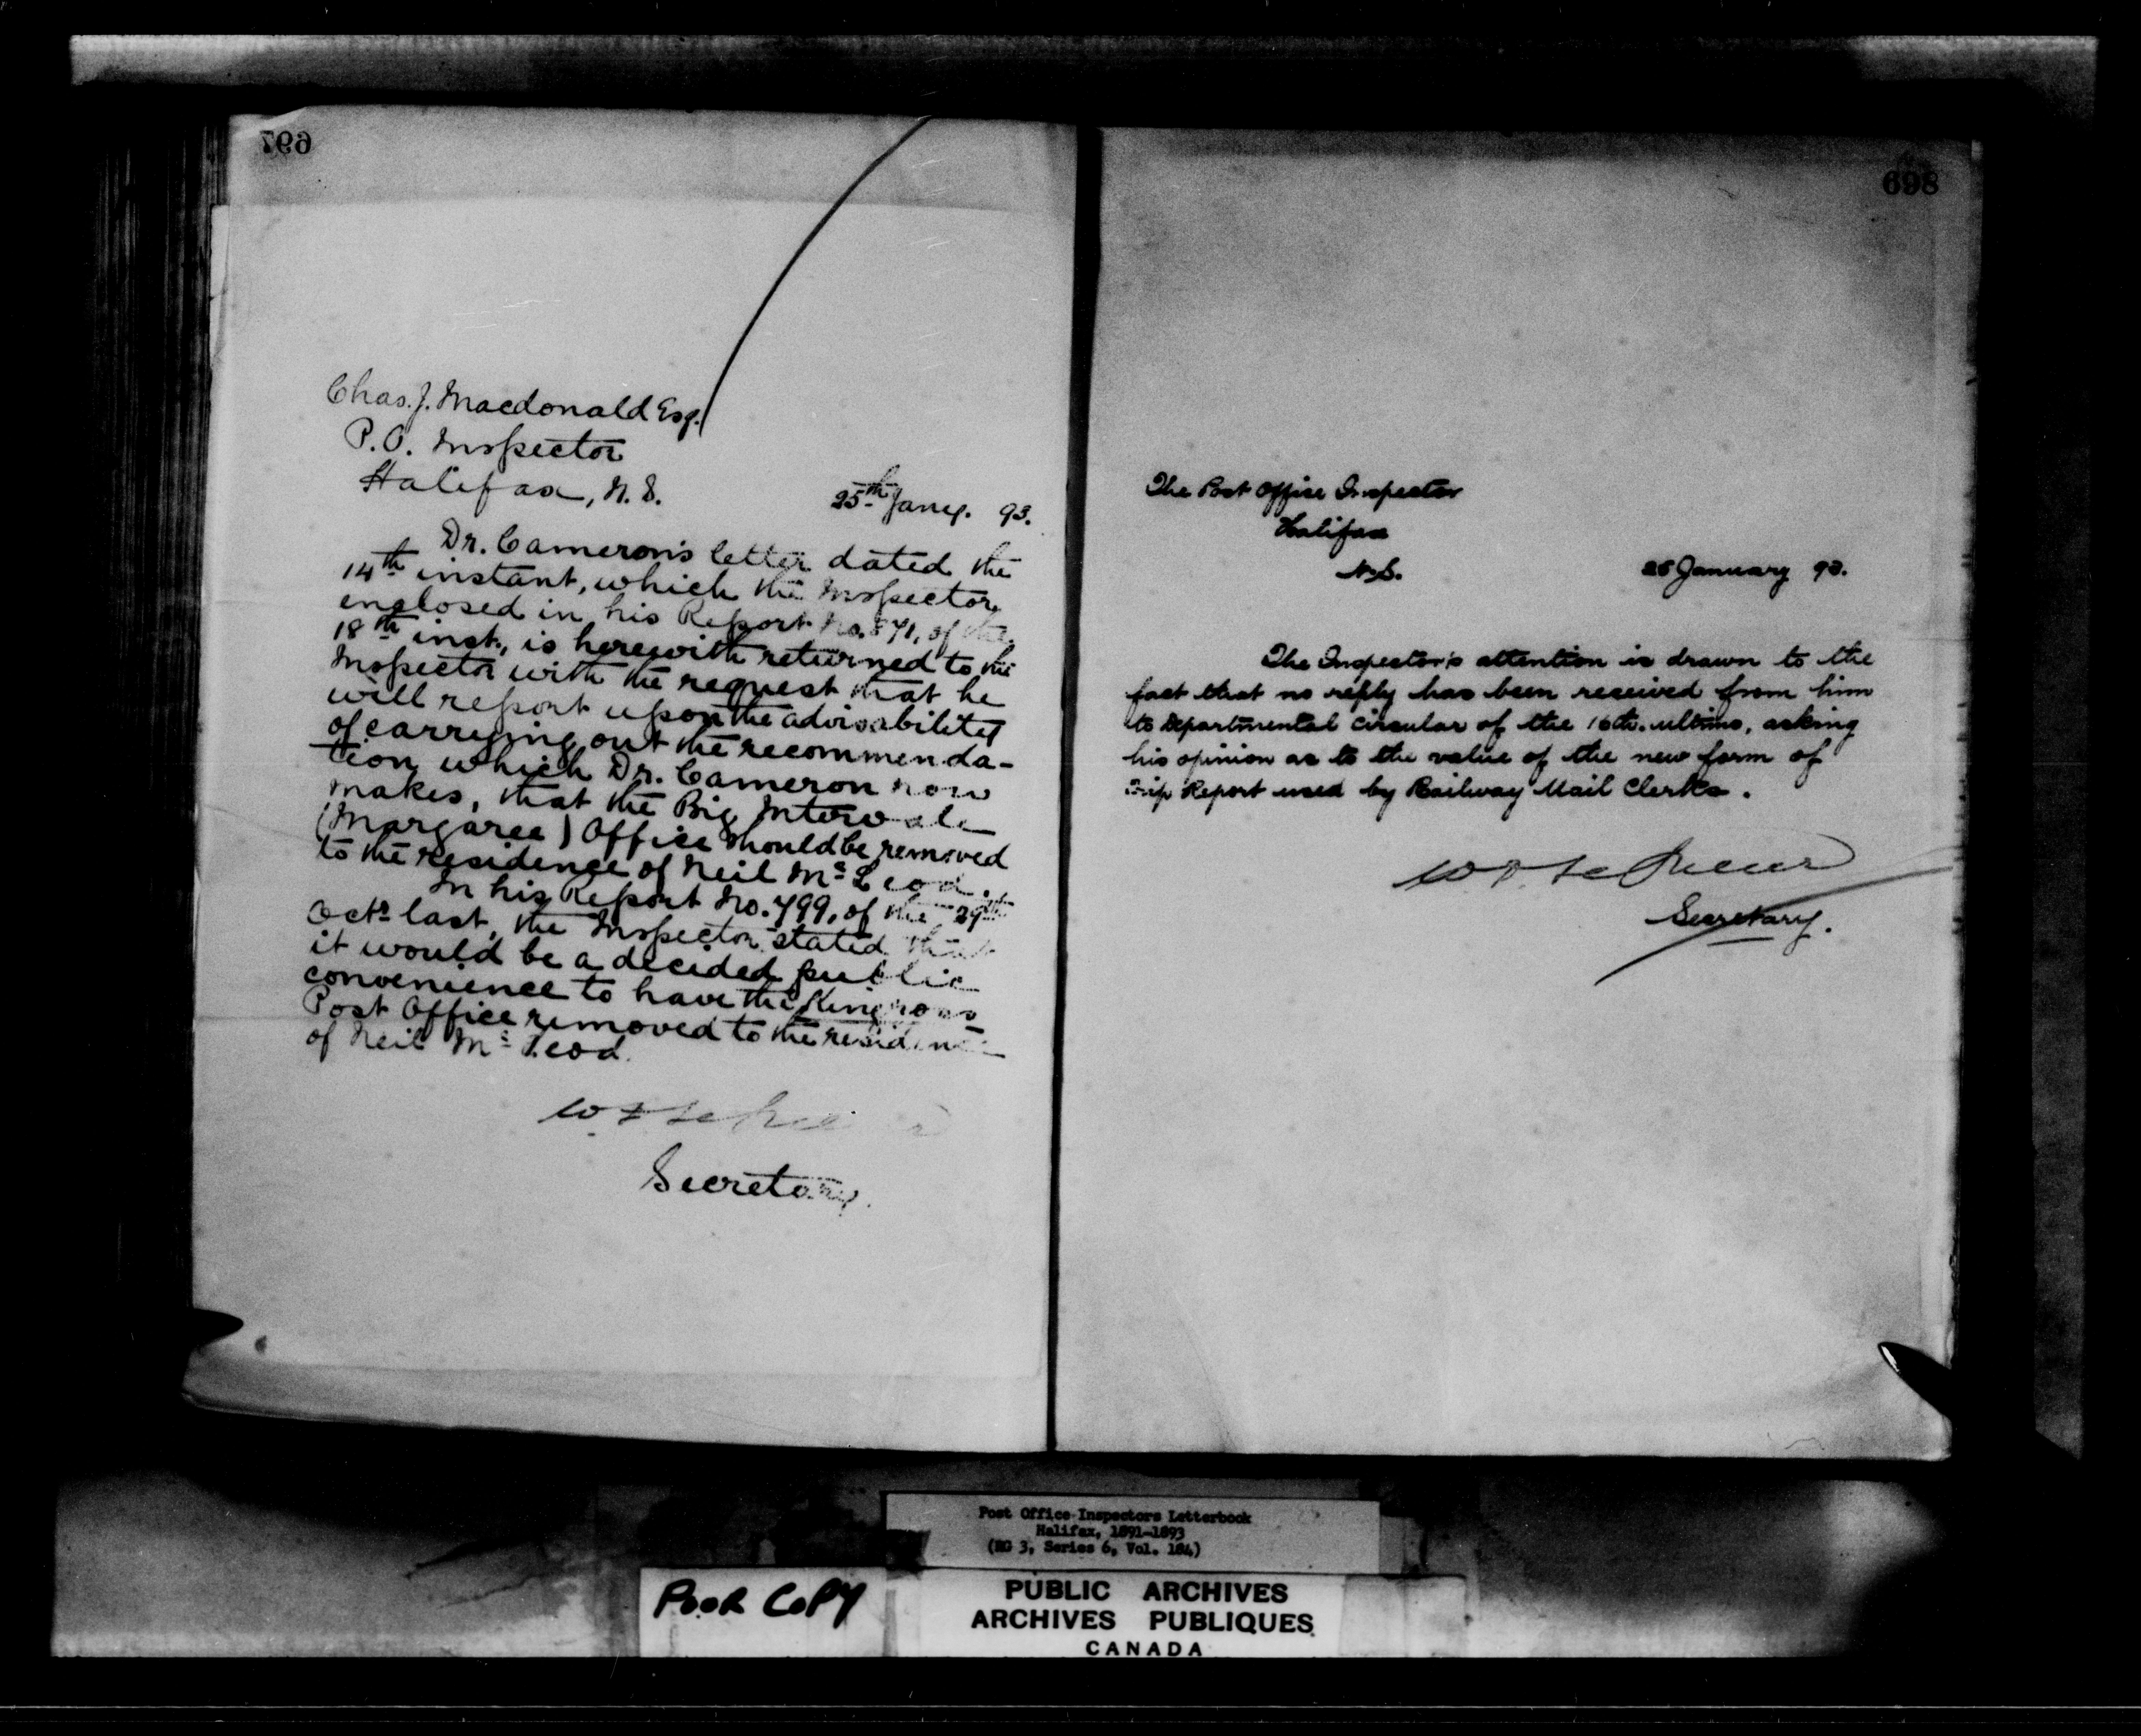 697
Chas. J. Macdonald Esq.
P.O. Inspector
Halifax, N.S.
25th Jany. 93.
Dr. Cameron's letter dated the
14th instant, which the Inspector
enclosed in his Report No. 871, of the
18th inst., is herewith returned to the
Inspector with the request that he
will report upon the advisability
of carrying out the recommenda-
tion which Dr. Cameron now
makes, that the Big Intervale
(Margaree) Office should be removed
to the residence of Neil McLeod.
In his Report No. 799, of the 29th
Octr last, the Inspector stated that
it would be a decided public
convenience to have the Kingross
Post Office removed to the residence
of Neil McLeod.
Secretary.
698
The Post Office Inspector
Halifax
N.S.
January 93.
The Inspector's attention is drawn to the
fact that no reply has been received from him
to Departmental Circular of the 16th. ultimo, asking
his opinion as to the value of the new form of
Trip Report used by Railway Mail Clerks.
Secretary.
Post Office Inspectors Letterbook
Halifax, 1891-1893
(RG 3, Series 6, Vol. 184)
POOR COPY
PUBLIC ARCHIVES
ARCHIVES PUBLIQUES
CANADA